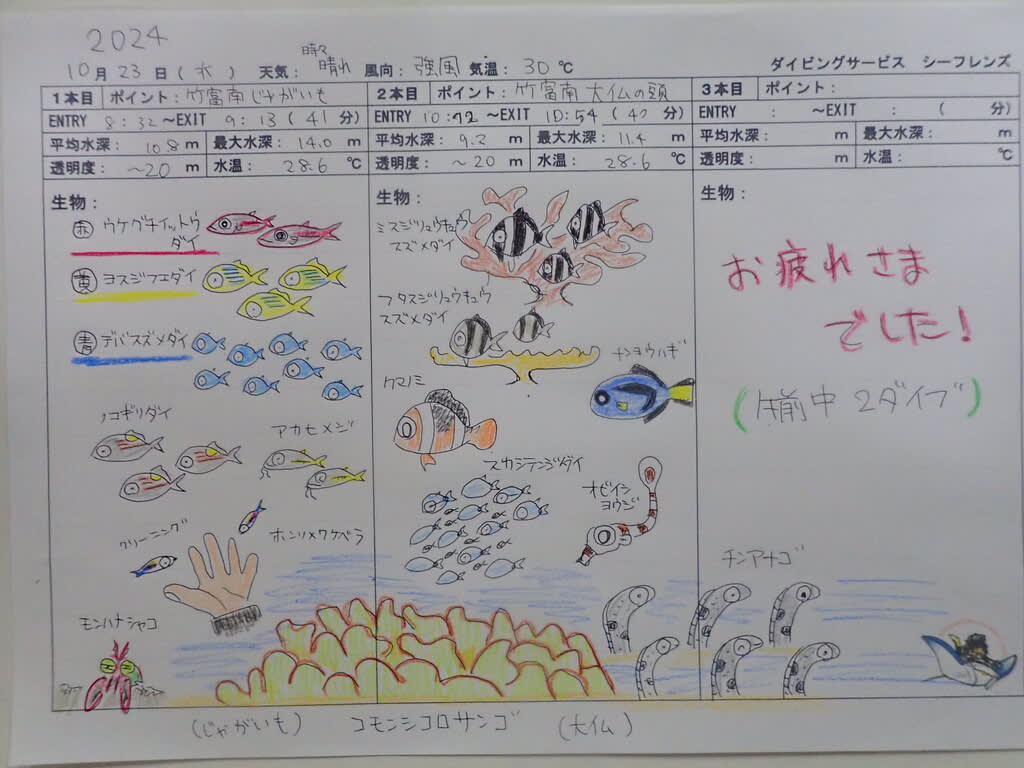 2024
10月23日(水) 天気:時々晴れ 風向:強風 気温:30℃ ダイビングサービス シーフレンズ
1本目 ポイント:竹富南じゃがいも
ENTRY 8:32~EXIT 9:13(41分)
平均水深:10.8m 最大水深:14.0m
透明度:~20m 水温:28.6℃
生物:
赤 ウケグチイットウ
ダイ
黄 ヨスジフエダイ
青 デバスズメダイ
ノコギリダイ
アカヒメジ
クリーニング
ホンソメワケベラ
モンハナシャコ
2本目 ポイント:竹富南 大仏の頭
ENTRY 10:12~EXIT 10:54(42分)
平均水深:9.2m 最大水深:11.4m
透明度:~20m 水温:28.6℃
生物:
ミスジリュウキュウ
スズメダイ
フタスジリュウキュウ
スズメダイ
ナンヨウハギ
クマノミ
スカシテンジクダイ
オビイシ
ヨウジ
3本目 ポイント:
ENTRY : ~EXIT : ( 分)
平均水深: m 最大水深: m
透明度: m 水温: ℃
生物:
お疲れさま
でした!
(午前中 2ダイブ)
チンアナゴ
(じゃがいも) コモンシコロサンゴ (大仏)